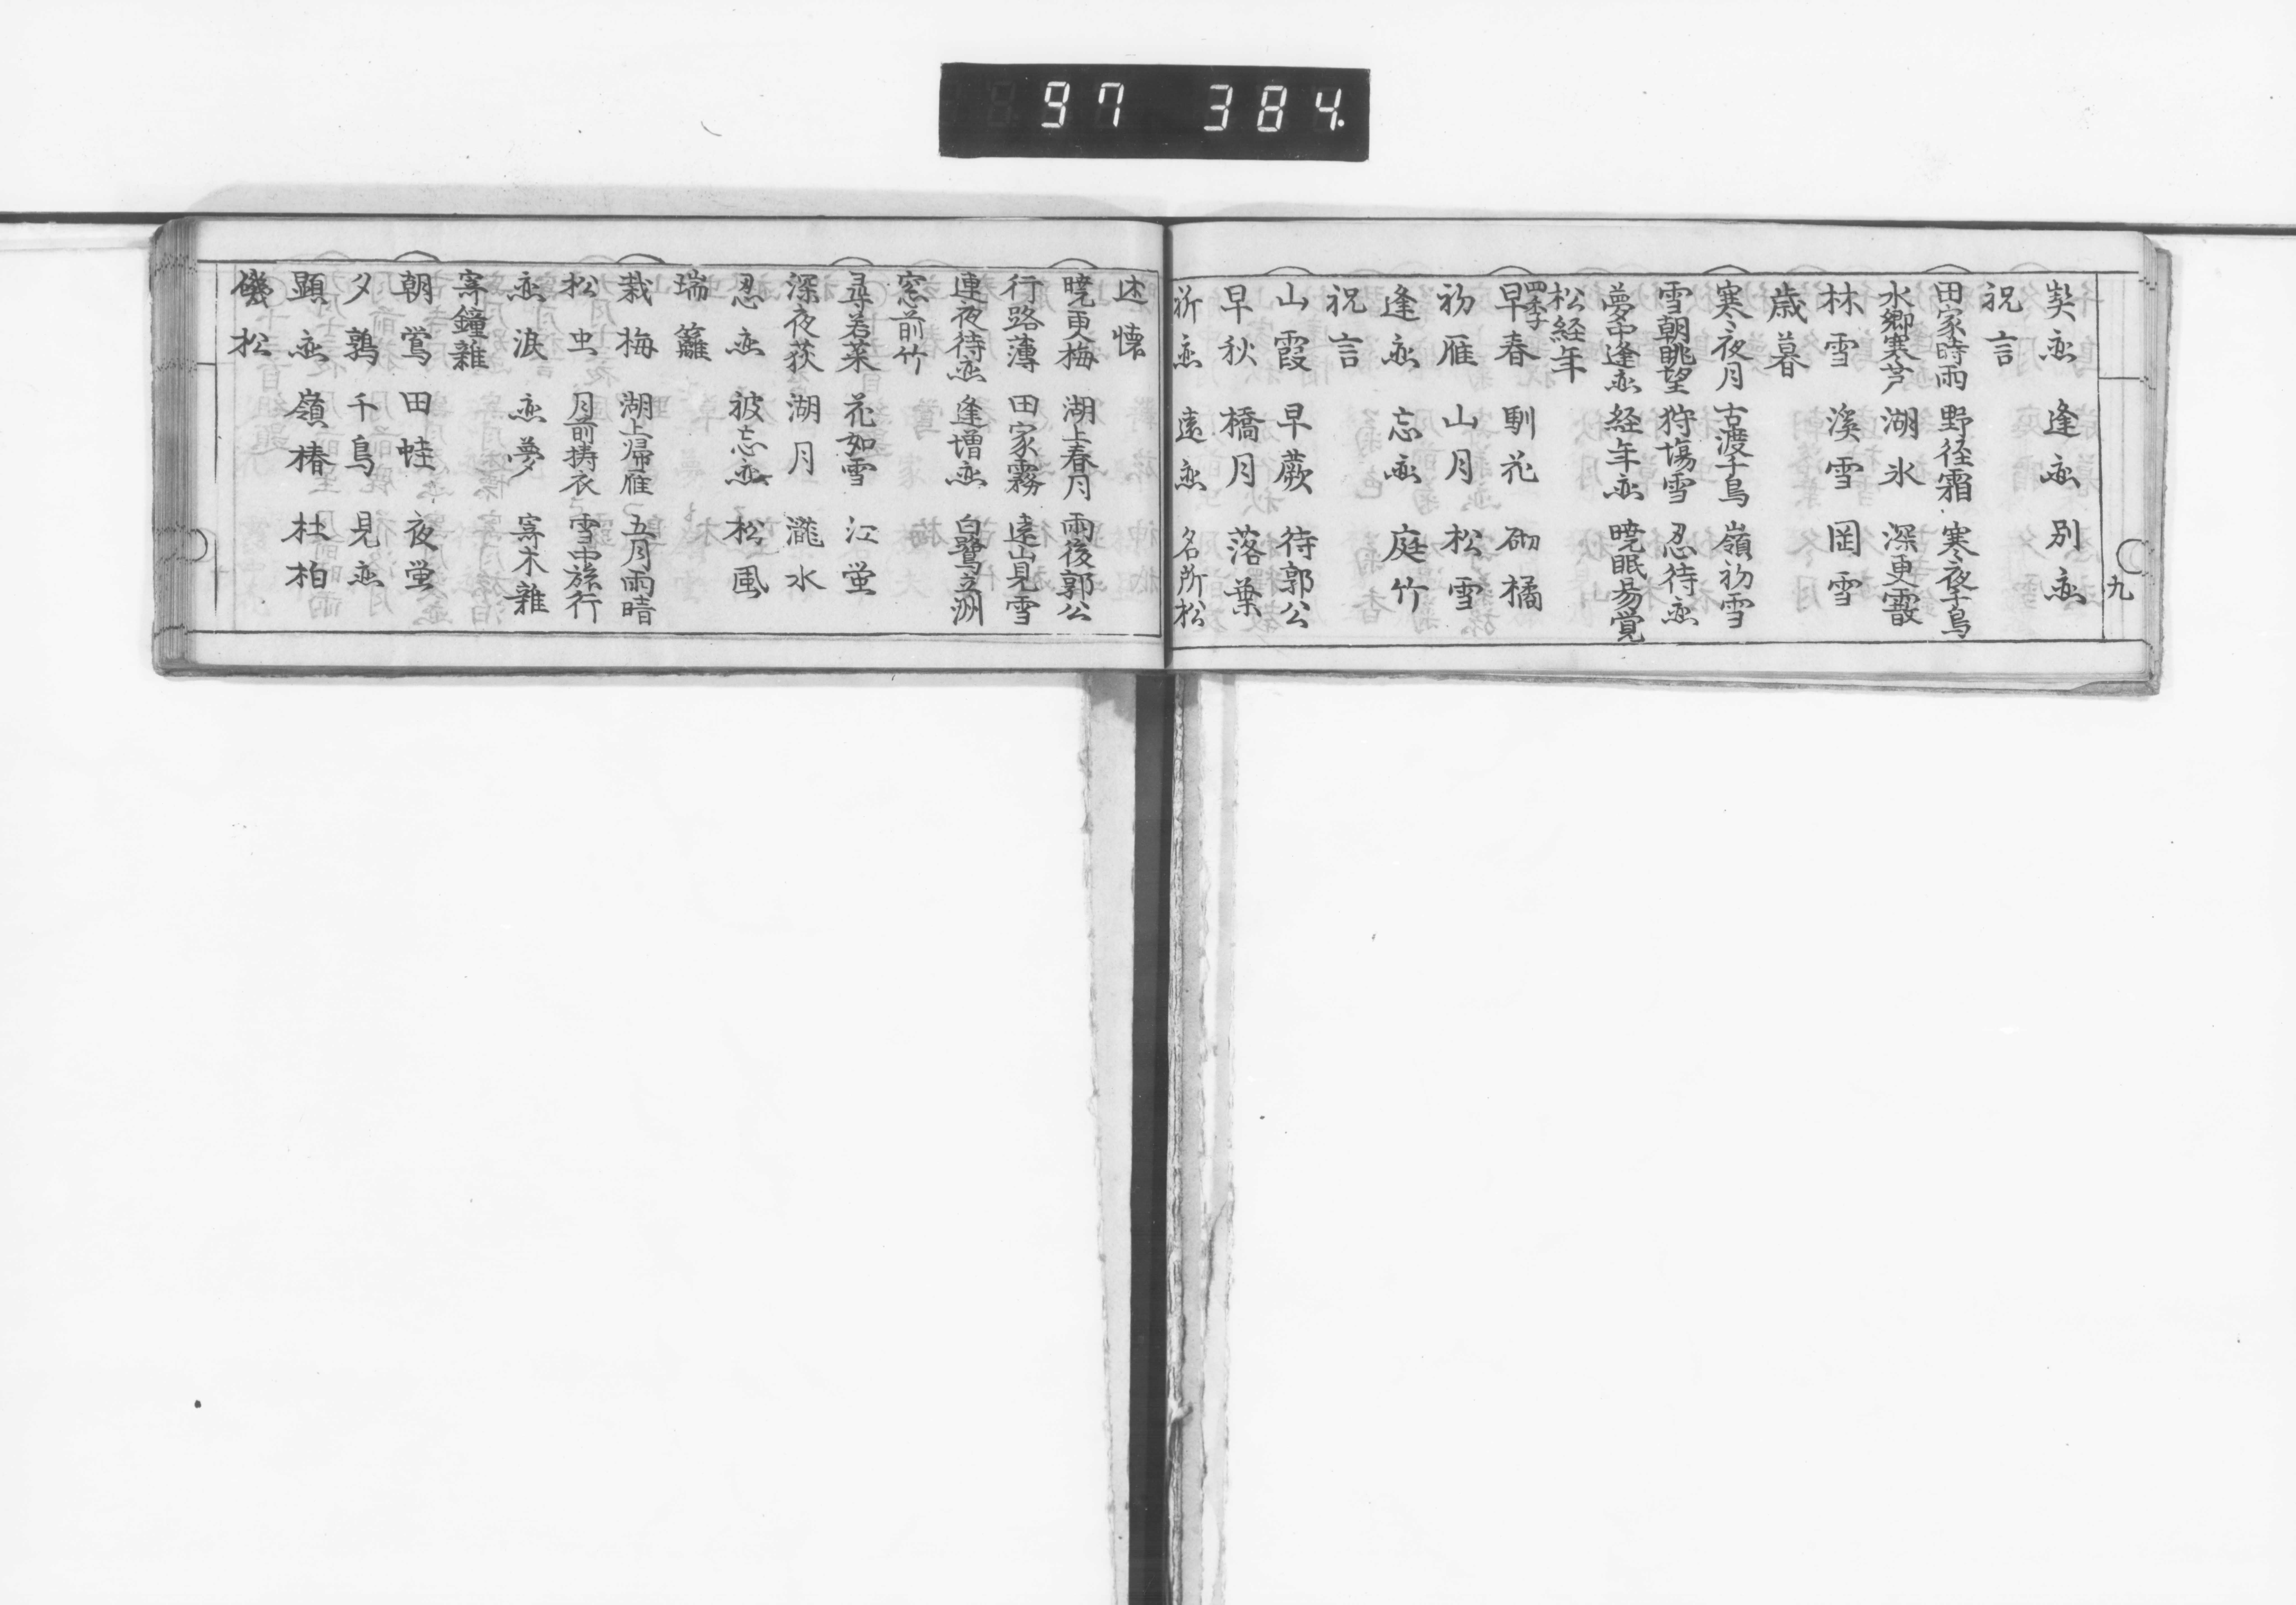 97 384.
九
契恋 逢恋 別恋
祝言
田家時雨 野径霜 寒夜千鳥
水郷寒芦 湖氷 深更霰
林雪 溪雪 岡雪
歳暮
寒夜月 古渡千鳥 嶺初雪
雪朝眺望 狩場雪 忍待恋
夢中逢恋 経年恋 暁眠易覚
松経年
四季
早春 馴花 砌橘
初雁 山月 松雪
逢恋 忘恋 庭竹
祝言
山霞 早蕨 待郭公
早秋 橋月 落葉
祈恋 遠恋 名所松
述懐
暁更梅 湖上春月 雨後郭公
行路薄 田家霧 遠山見雪
連夜待恋 逢増恋 白鷺立洲
窓前竹
尋若菜 花如雪 江蛍
深夜荻 湖月 瀧水
忍恋 被忘恋 松風
瑞籬
栽梅 湖上帰雁 五月雨晴
松虫 月前擣衣 雪中旅行
恋涙 恋夢 寄木雜
寄鐘雜
朝鶯 田蛙 夜蛍
夕鶉 千鳥 見恋
顕恋 嶺椿 杜柏
磯松